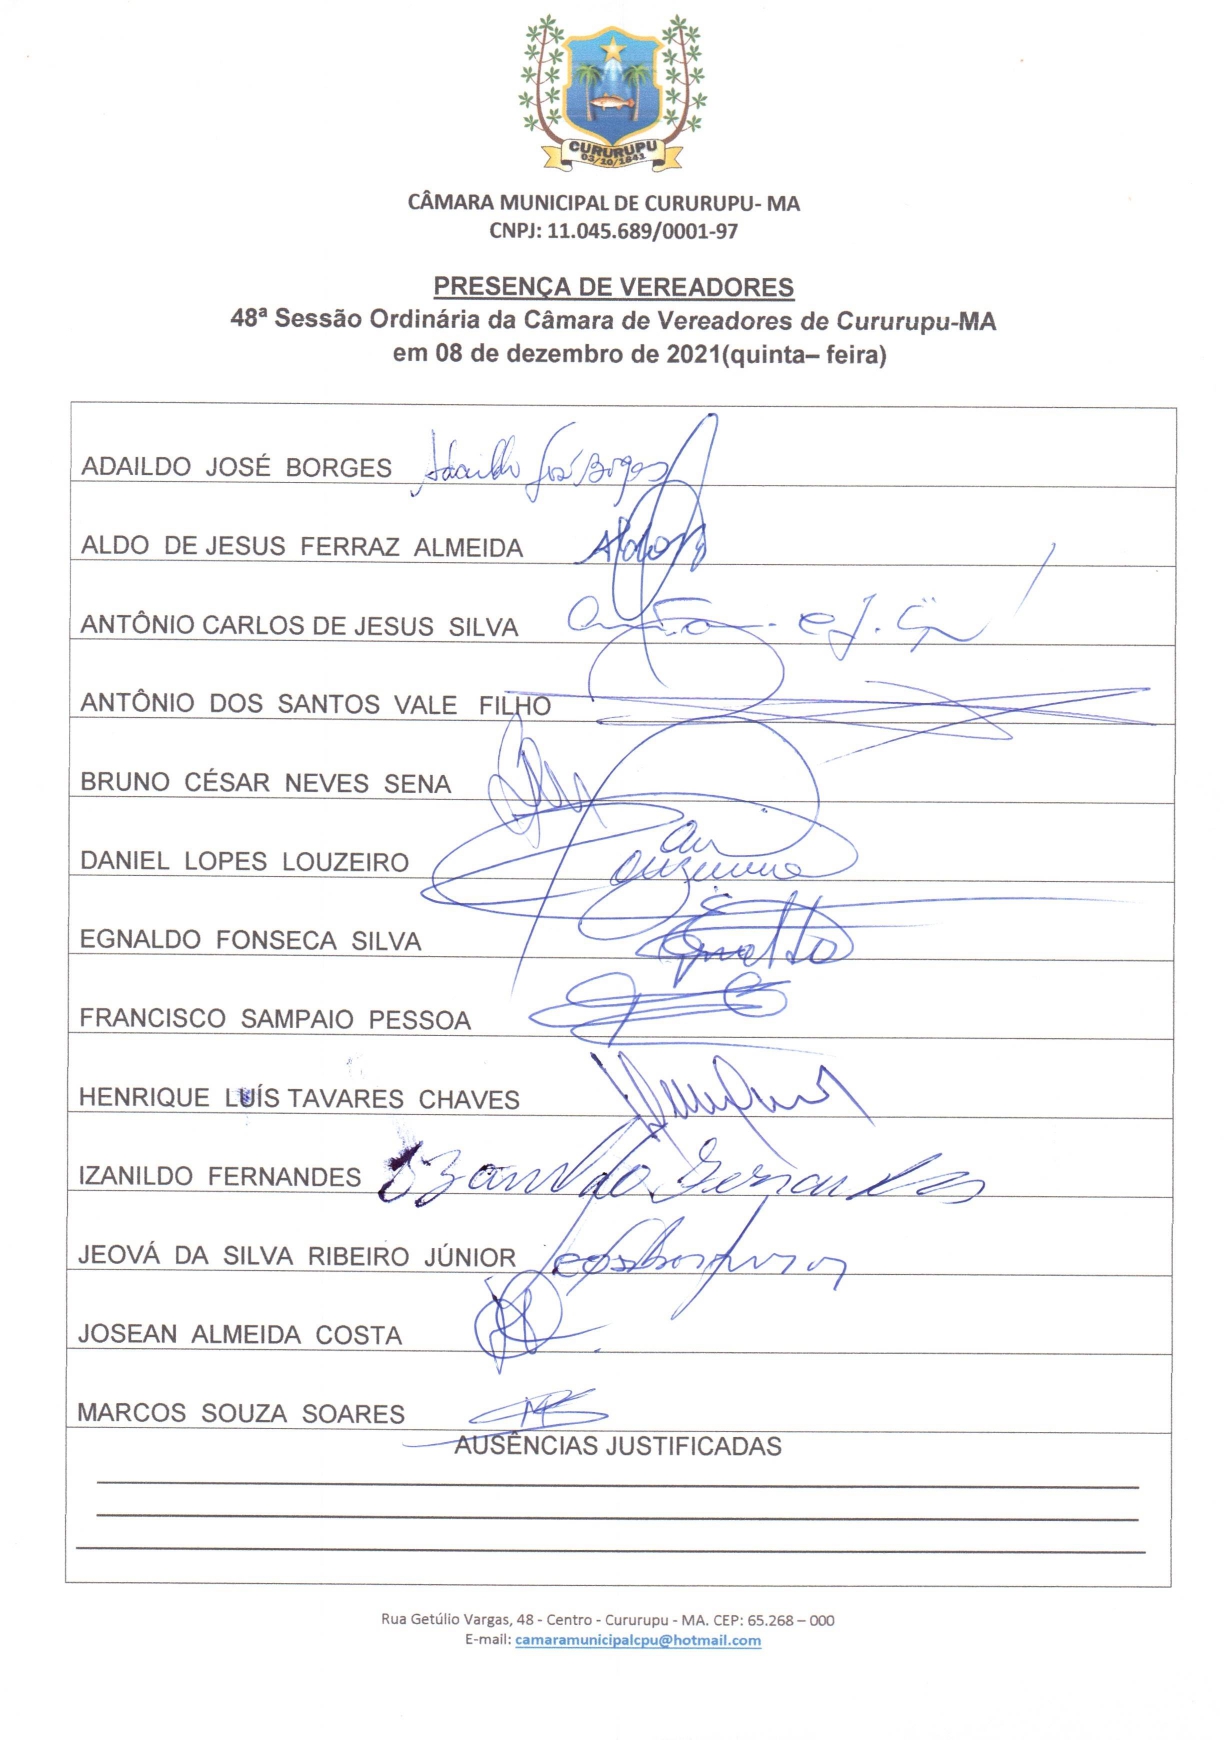 CURURUPU
03/10/1841
CÂMARA MUNICIPAL DE CURURUPU- MA
CNPJ: 11.045.689/0001-97
PRESENÇA DE VEREADORES
48ª Sessão Ordinária da Câmara de Vereadores de Cururupu-MA
em 08 de dezembro de 2021(quinta– feira)
ADAILDO JOSÉ BORGES Adaildo José Borges
ALDO DE JESUS FERRAZ ALMEIDA
ANTÔNIO CARLOS DE JESUS SILVA
ANTÔNIO DOS SANTOS VALE FILHO
BRUNO CÉSAR NEVES SENA
DANIEL LOPES LOUZEIRO
EGNALDO FONSECA SILVA
FRANCISCO SAMPAIO PESSOA
HENRIQUE LUÍS TAVARES CHAVES
IZANILDO FERNANDES Izanildo Fernandes
JEOVÁ DA SILVA RIBEIRO JÚNIOR
JOSEAN ALMEIDA COSTA
MARCOS SOUZA SOARES
AUSÊNCIAS JUSTIFICADAS
Rua Getúlio Vargas, 48 - Centro - Cururupu - MA. CEP: 65.268 – 000
E-mail: camaramunicipalcpu@hotmail.com